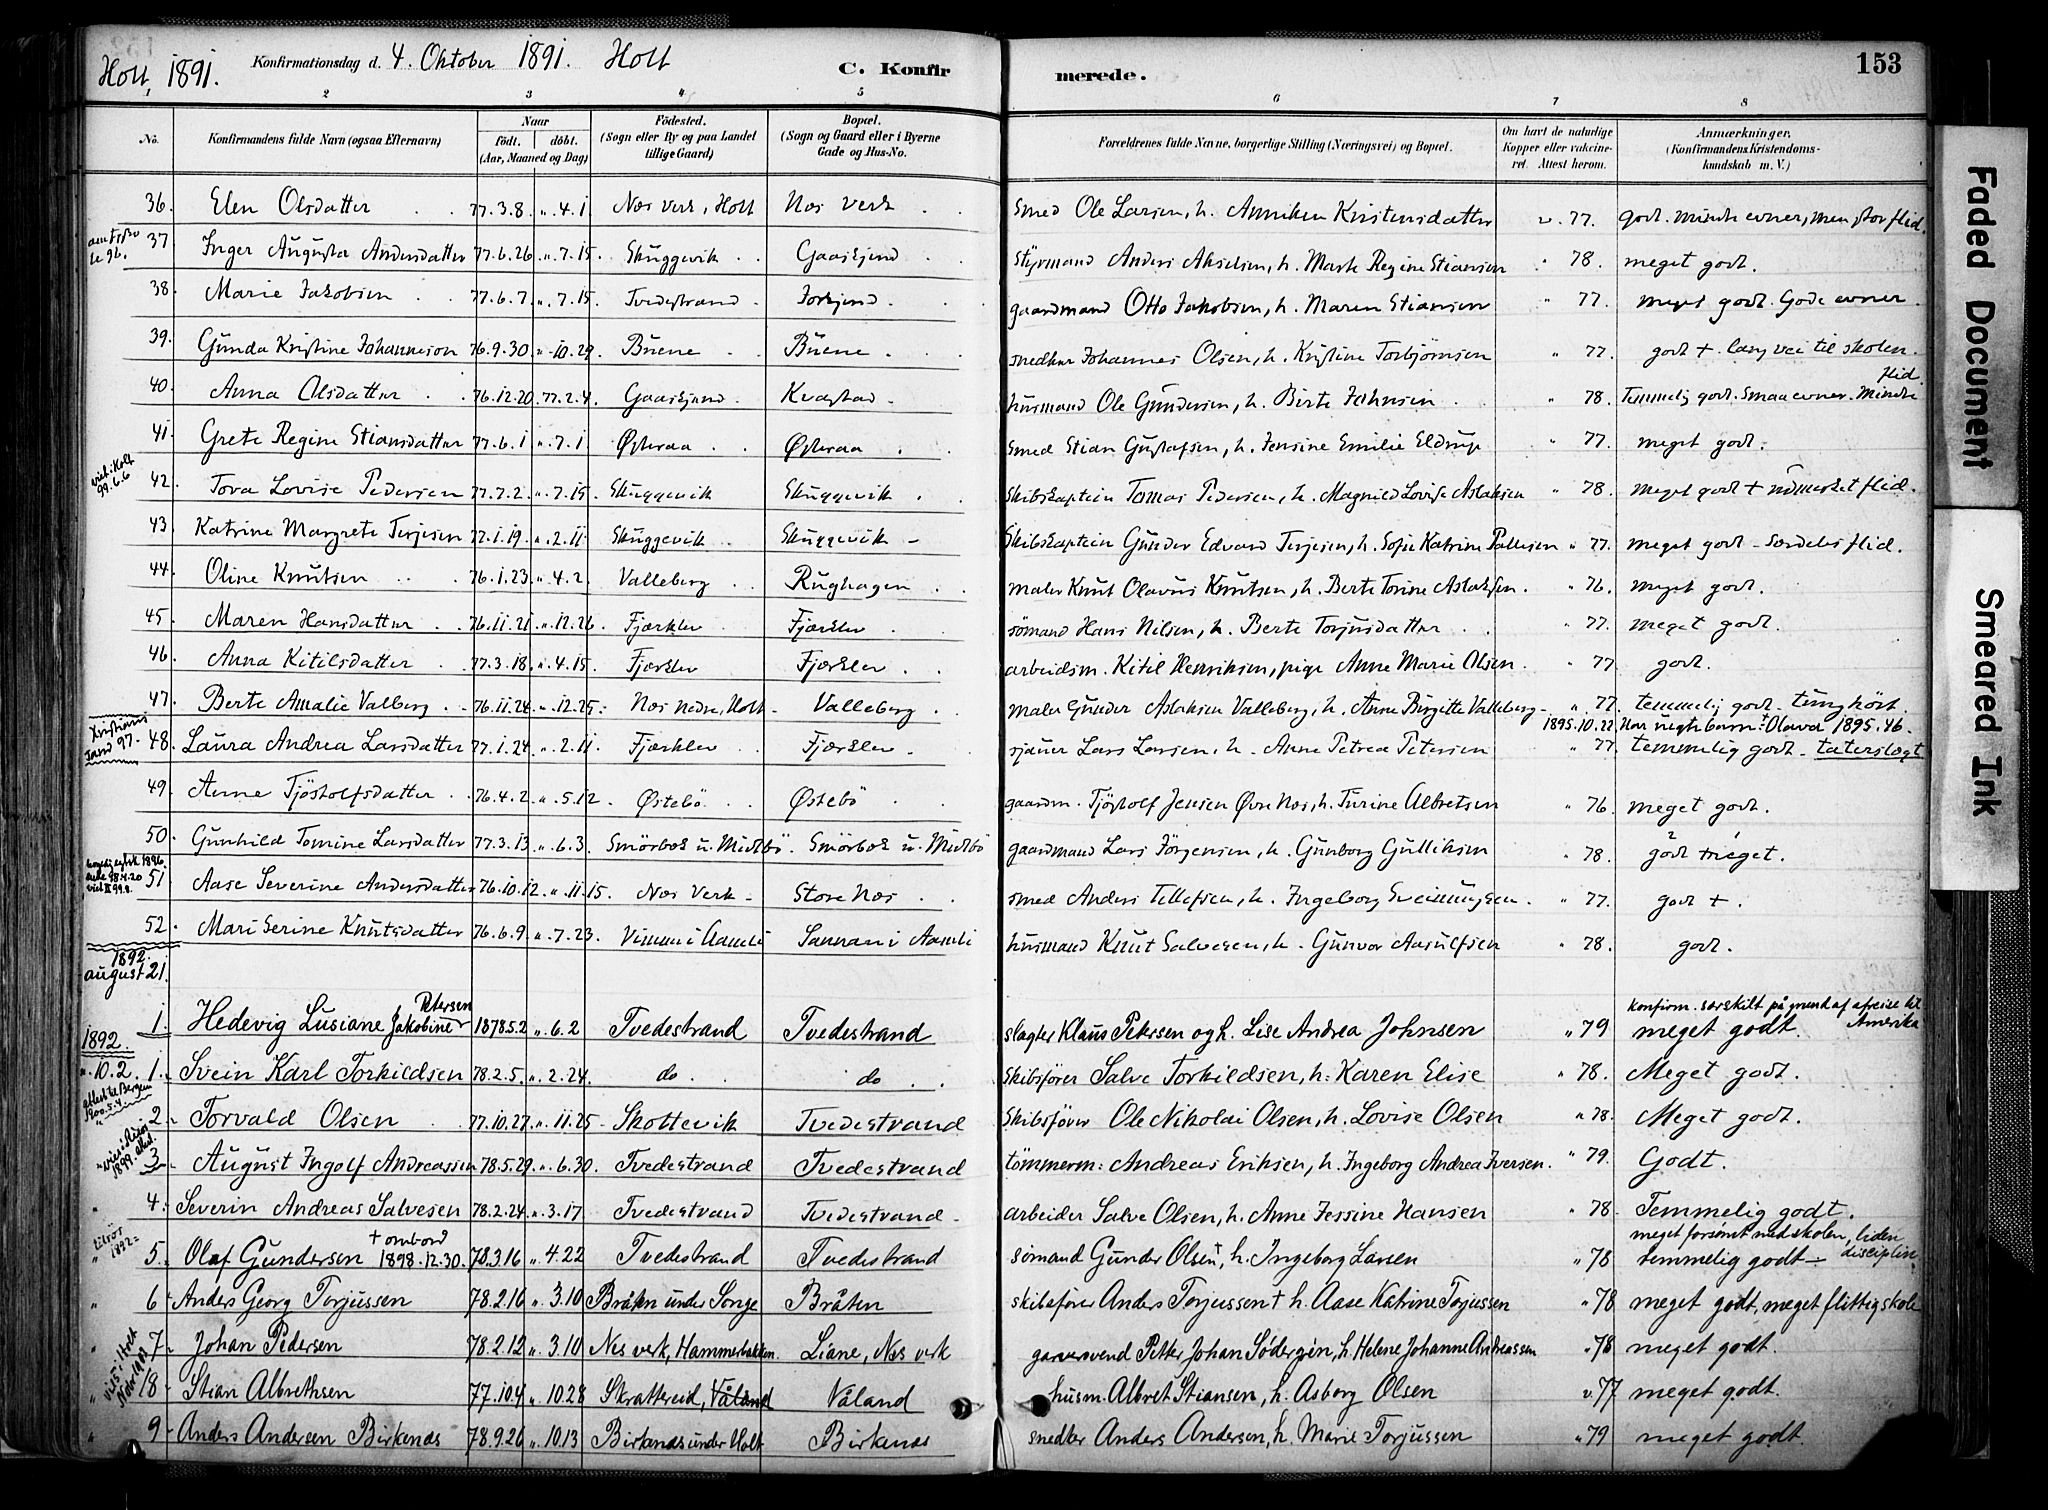 Holt, 1891. Konfirmationsdag d. 4. Oktober 1891. Holt C. Konfirmerede. 153
1 2 3 4 5 6 7 8
No. Konfirmandens fulde Navn (ogsaa Efternavn) Naar født, døbt. (Aar, Maaned og Dag) Fødested. (Sogn eller By og paa Landet tillige Gaard) Bopæl. (Sogn og Gaard eller i Byerne Gade og Hus-No. Forældrenes fulde Navne, borgerlige Stilling (Næringsvei) og Bopæl. Om havt de naturlige Kopper eller vaccineret. Attest herom. Anmærkninger. (Konfirmandens Kristendomskundskab m. V.)
36. Elen Olsdatter 77.3.8. „ 4.1. Nes Verk, Holt Nes Verk smed Ole Larsen, h. Anniken Kristensdatter v. 77. godt. mindre evner, men stor flid.
37 Inger Augusta Andersdatter 77.6.26 „ 7.15. Skuggevik Gaaskjend styrmand Anders Akselsen, h. Marte Regine Stiansen „ 78. meget godt.
38. Marie Jakobsen 77.6.7. „ 7.15. Tvedestrand gaardmand Otto Jakobsen, h. Maren Stiansen „ 77. meget godt. Gode evner.
39. Gunda Kristine Johannesen 76.9.30. „ 10.29. Buene Buene snedker Johannes Olsen, h. Kristine Torbjørnsen „ 77. godt +. lang vei til skolen.
40. Anna Olsdatter 76.12.20. 77.2.4. Gaaskjend Kvastad husmand Ole Gundersen, h. Birte Johnsen „ 78. Temmelig godt. Smaa evner. Mindre flid.
41. Grete Regine Stiansdatter 77.6.1 „ 7.1 Østeraa Østeraa smed Stian Gustafsen, h. Jensine Emilie Eldrup „ 77. meget godt.
viet i Holt 99.6.6 42. Tova Lovise Pedersen 77.7.2. „ 7.15. Skuggevik Skuggevik skibskaptein Tomas Pedersen, h. Magnild Lovise Aslaksen „ 78. meget godt + udmerket flid.
43. Katrine Margrete Terjesen 77.1.19. „ 2.11. Skuggevik Skuggevik skibskaptein Gunder Edvard Terjesen, h. Sofie Katrine Pallesen „ 77. meget godt - særdeles flid.
44. Oline Knutsen 76.1.23. „ 4.2. Valleberg Rughagen maler Knut Olavus Knutsen, h. Berte Torine Aslaksen. „ 76. meget godt.
45. Maren Hansdatter 76.11.21. „ 12.26. Fjærklev Fjærklev sømand Hans Nilsen, h. Berte Torjusdatter „ 77. meget godt.
46. Anna Kitilsdatter 77.3.18. „ 4.15. Fjærklev Fjærklev arbeidsm. Kitil Henriksen, pige Anne Marie Olsen. „ 77 godt.
47. Berte Amalie Valberg 76.11.24. „ 12.25. Nes nedre, Holt Valleberg maler Gunder Aslaksen Valleberg, h. Anne Birgitte Valleberg „ 77. temmelig godt - tunghørt.
Kristianssand 97. 1895.10.22. Har uegte barn: Olava 1895.46.
48. Laura Andrea Larsdatter 77.1.24. „ 2.11. Fjærklev Fjærklev sjauer Lars Larsen, h. Anne Petrea Petersen „ 77. temmelig godt - taterslegt
49. Anne Tjøstolfsdatter 76.4.2. „ 5.12. Østebø Østebø gaardm. Tjøstolf Jensen Øvre Nes, h. Turine Albretsen „ 76 meget godt.
50. Gunhild Tomine Larsdatter 77.3.13. „ 6.3. Smørbok u. Midtbø. Smørbok u. Midtbø gaardmand Lars Jørgensen, h. Gunborg Gulliksen „ 78. godt meget.
51. Aase Severine Andersdatter 76.10.12. „ 11.15. Nes Verk Store Nes smed Anders Tellefsen, h. Ingeborg Sveinungsen. „ 77. godt +.
52. Mari Serine Knutsdatter 76.6.9. „ 7.23. Vimme i Aamli i Aamli husmand Knut Salvesen, h. Gunvor Aasulfsen „ 78. godt.
1892. august 21.
1. Hedevig Lusiane Jakobine Petersen 1878.5.2 „ 6.2 Tvedestrand Tvedestrand slagter Klaus Petersen og h. Lise Andrea Johnsen „ 79 konfirm. særskilt på grund af afreise til Amerika meget godt.
1892.
„ 10.2. 1. Svein Karl Torkildsen 78.2.5. „ 2.24. do do skibsfører Salve Torkildsen, h: Karen Elise „ 78. Meget godt.
attest til Bergen 1900.5.4. 2. Torvald Olsen 77.10.27. „ 11.25 Skottevik Tvedestrand skibsfører Ole Nikolai Olsen, h. Lovise Olsen „ 78. Meget godt.
3. August Ingolf Andreassen 78.5.29. „ 6.30. Tvedestrand Tvedestrand tømmerm: Andreas Eriksen, h. Ingeborg Andrea Iversen. „ 79. Godt.
4. Severin Andreas Salvesen 78.2.24. „ 3.17. Tvedestrand Tvedestrand arbeider Salve Olsen, h. Anne Jessine Hansen „ 78. Temmelig godt.
tilsjøs 1892 5. Olaf Gundersen + ombord 1898.12.30. 78.3.16 „ 4.22 Tvedestrand Tvedestrand sømand Gunder Olsen +, h. Ingeborg Larsen „ 78 meget forsømt med skolen, liden disciplin. temmelig godt
6. Anders Georg Torjussen 78.2.16 „ 3.10 Bråten under Songe Bråten skibsfører Anders Torjussen + h. Aase Katrine Torjussen „ 78 meget godt, meget flittig skole
7. Johan Pedersen 78.2.12 „ 3.10 Nes verk, Hammerbakken. Liane, Nes verk garversvend Petter Johan Södergren, h. Helene Johanne Andreassen „ 78 meget godt.
8. Stian Albrethsen 77.10.4 „ 10.28 Skrattereid, Våland Våland husm. Albret Stiansen, h. Asborg Olsen v. 77 meget godt.
9. Anders Andersen Birkenes 78.9.26 „ 10.13 Birkenes under Holt Birkenes snedker Anders Andersen, h. Marie Torjussen „ 79 meget godt.
Faded Document
Smeared Ink